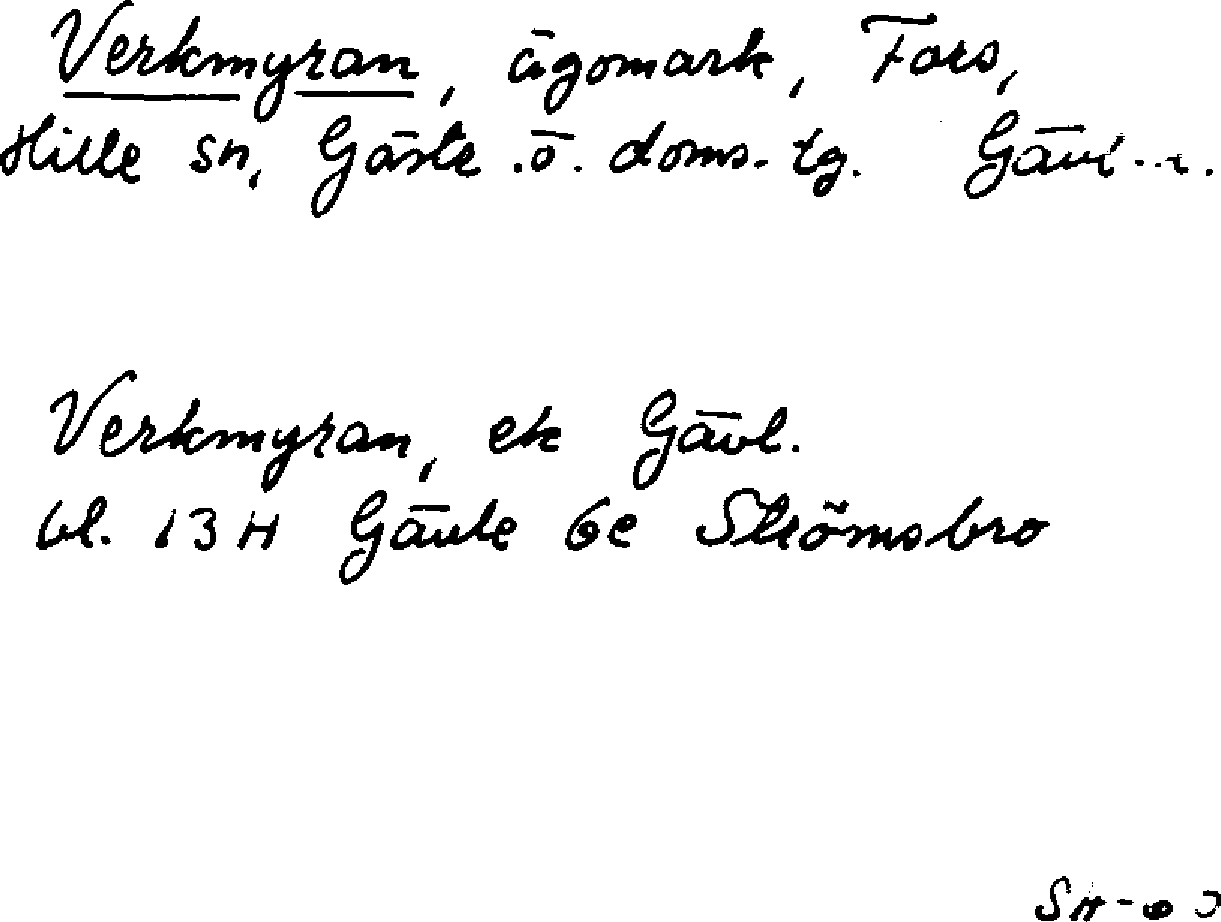 Verkmyran, ägomark, Fors,
Hille sn, Gästr. ö. doms. tg. Gävl.
Verkmyran, ek Gävl.
bl. 13H Gävle 6e Strömsbro